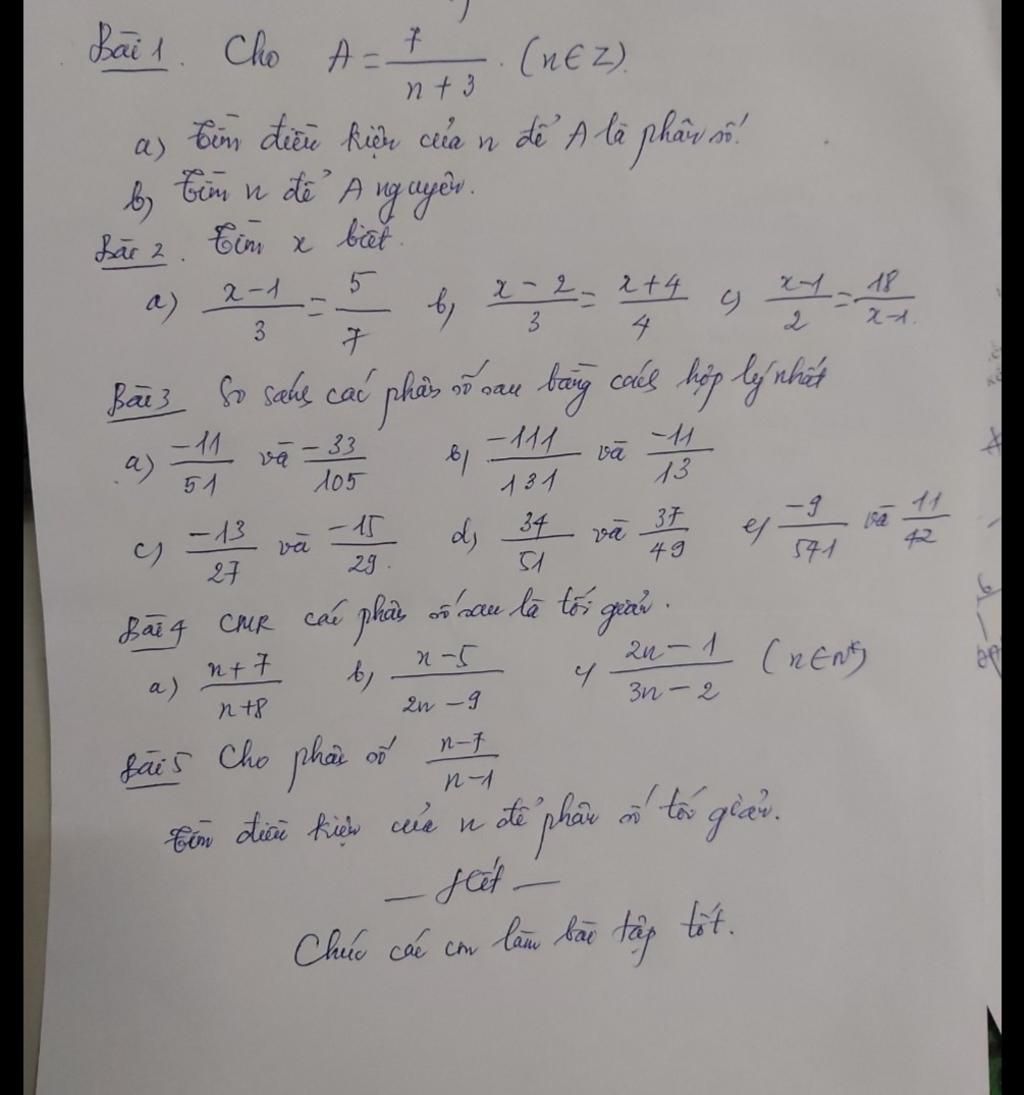 Bài 1. Cho A = 7/(n + 3). (n ∈ Z).
a) Tìm điều kiện của n để A là phân số.
b) Tìm n để A nguyên.
Bài 2. Tìm x biết.
a) (x - 1)/3 = 5/7 b) (x - 2)/3 = (x + 4)/4 c) (x - 1)/2 = 18/(x - 1).
Bài 3 So sánh các phân số sau bằng cách hợp lý nhất
a) -11/51 và -33/105 b) -111/131 và -11/13
c) -13/27 và -15/29. d) 34/51 và 37/49 e) -9/571 và 11/42
Bài 4 CMR các phân số sau là tối giản.
a) (n + 7)/(n + 8) b) (n - 5)/(2n - 9) c) (2n - 1)/(3n - 2) (n ∈ N*)
Bài 5 Cho phân số (n - 7)/(n - 1)
Tìm điều kiện của n để phân số tối giản.
— Hết —
Chúc các em làm bài tập tốt.